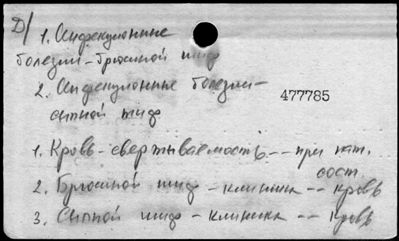 Д/ 1. Инфекционные
болезни - брюшной тиф
2. Инфекционные болезни -
сыпной тиф
477785
1. Кровь - свертываемость -- при пат.
сост.
2. Брюшной тиф - клиника -- кровь
3. Сыпной тиф - клиника -- кровь